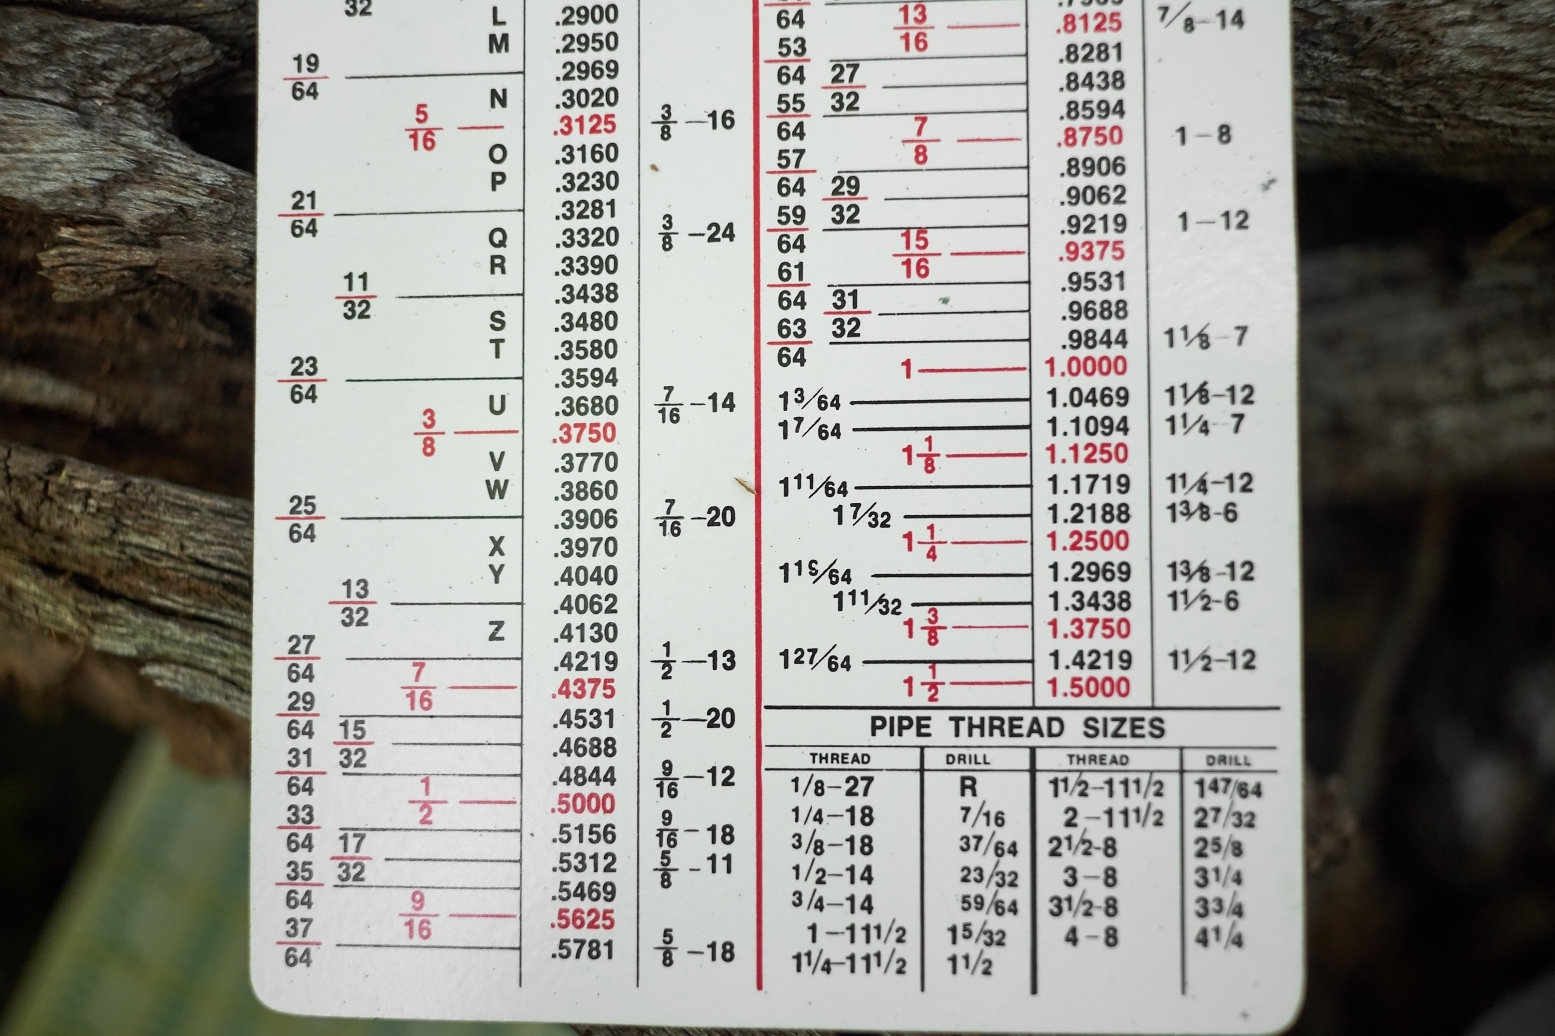 32 L .2900
M .2950
19/64 .2969
N .3020
5/16 .3125 3/8–16
O .3160
P .3230
21/64 .3281
Q .3320 3/8–24
R .3390
11/32 .3438
S .3480
T .3580
23/64 .3594
U .3680 7/16–14
3/8 .3750
V .3770
W .3860
25/64 .3906 7/16–20
X .3970
Y .4040
13/32 .4062
Z .4130
27/64 .4219 1/2–13
7/16 .4375
29/64 .4531 1/2–20
15/32 .4688
31/64 .4844 9/16–12
1/2 .5000
33/64 .5156 9/16–18
17/32 .5312 5/8–11
35/64 .5469
9/16 .5625
37/64 .5781 5/8–18
64
13/16 .8125 7/8–14
53/64 .8281
27/32 .8438
55/64 .8594
7/8 .8750 1–8
57/64 .8906
29/32 .9062
59/64 .9219 1–12
15/16 .9375
61/64 .9531
31/32 .9688
63/64 .9844 1 1/8–7
1 1.0000
1 3/64 1.0469 1 1/8–12
1 7/64 1.1094 1 1/4–7
1 1/8 1.1250
1 11/64 1.1719 1 1/4–12
1 7/32 1.2188 1 3/8–6
1 1/4 1.2500
1 19/64 1.2969 1 3/8–12
1 11/32 1.3438 1 1/2–6
1 3/8 1.3750
1 27/64 1.4219 1 1/2–12
1 1/2 1.5000
PIPE THREAD SIZES
THREAD DRILL THREAD DRILL
1/8–27 R 1 1/2–11 1/2 1 47/64
1/4–18 7/16 2–11 1/2 2 7/32
3/8–18 37/64 2 1/2–8 2 5/8
1/2–14 23/32 3–8 3 1/4
3/4–14 59/64 3 1/2–8 3 3/4
1–11 1/2 1 5/32 4–8 4 1/4
1 1/4–11 1/2 1 1/2